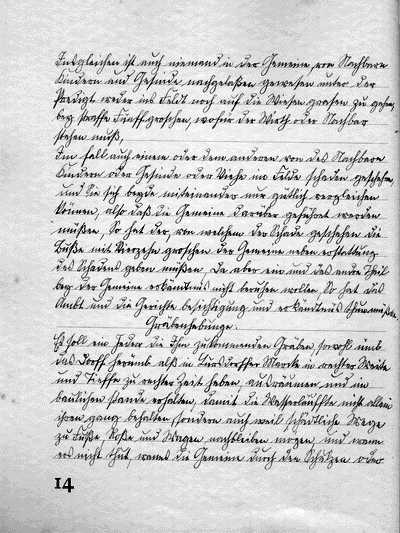 Imgleichen ist auch niemand in der Gemeine, von Nachbarn
Kindern und Gesinde nachgelaßen gewesen unter der
Predigt weder ins Feldt noch auf die Wiesen grasen zu gehen,
bey straffe Fünff groschen, wofür der Wirth oder Nachbar
stehen muß,
Im fall auch einem oder dem anderen von des Nachbarn
Kindern oder Gesinde oder Viehe im Felde schaden geschehen,
und Sie sich beyde miteinander nur gütlich vergleichen
können, also daß die Gemeine darüber geführet werden
müßen, So hat der, von welchem der Schade geschehen die
Buße mit Vierzehn groschen der Gemeine neben erstattung
des Schadens geben müßen. Da aber ein und des andre Theil
bey der Gemeine erkäntnus nicht beruhen wollen So hat das
Ambt und die Gerichte besichtigung und erkändtnus thun müßen.
Grabenhebunge.
Es soll ein Jeder die Ihm zukommenden Graben, sowohl umb
das Dorff herumb alß in Dorffer Marcke in rechter Weite
und Tieffe zu rechter Zeit heben, ausräumen und im
baulichen stande erhalten, damit die Wasserläuffte nicht allein
ihren gang behalten, sondern auch weil schädliche Wege
zu Fuße, Roße und Wagen nachbleiben mögen, und wann
ers nicht thut, wann die Gemeine durch den Schulzen oder
14